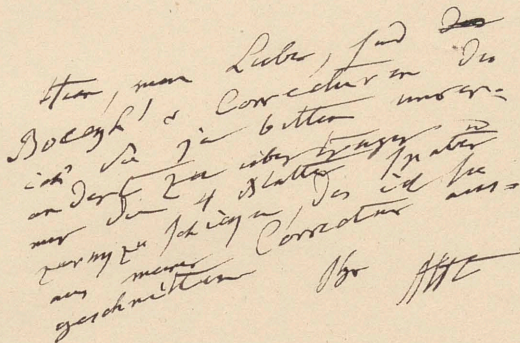 Hier, mein Lieber, sind
Correcturen die
ich Sie bitten unver-
ändert zu übertragen u
mir die 4 Blätter später
zurückzuschicken, das ich sie
aus meiner Correctur aus-
geschnitten Ihr